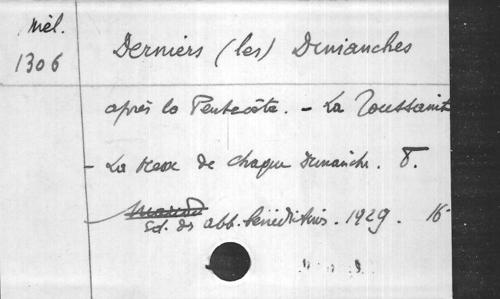 Mél.
1306
Derniers (les) Dimanches
après la Pentecôte. - La Toussaint
- La Messe de chaque dimanche. 8.
Ed. des abb. bénédictins. 1929. 16